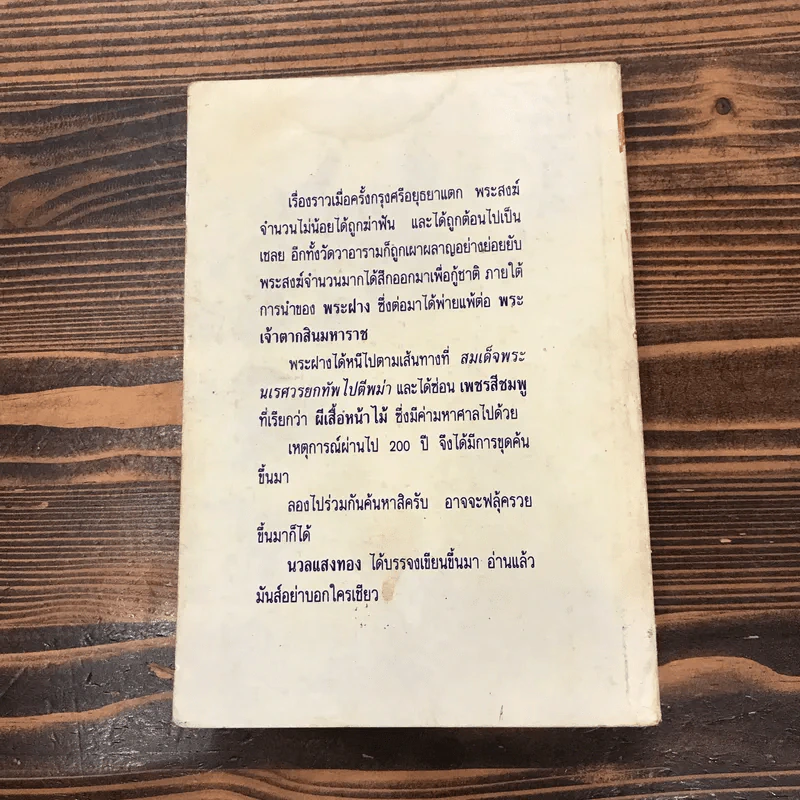 เรื่องราวเมื่อครั้งกรุงศรีอยุธยาแตก พระสงฆ์
จำนวนไม่น้อยได้ถูกฆ่าฟัน และได้ถูกต้อนไปเป็น
เชลย อีกทั้งวัดวาอารามก็ถูกเผาผลาญอย่างย่อยยับ
พระสงฆ์จำนวนมากได้สึกออกมาเพื่อกู้ชาติ ภายใต้
การนำของ พระฝาง ซึ่งต่อมาได้พ่ายแพ้ต่อ พระ
เจ้าตากสินมหาราช
พระฝางได้หนีไปตามเส้นทางที่ สมเด็จพระ
นเรศวรยกทัพไปตีพม่า และได้ซ่อน เพชรสีชมพู
ที่เรียกว่า ผีเสื้อหน้าไม้ ซึ่งมีค่ามหาศาลไปด้วย
เหตุการณ์ผ่านไป 200 ปี จึงได้มีการขุดค้น
ขึ้นมา
ลองไปร่วมกันค้นหาสิครับ อาจจะฟลุ้ครวย
ขึ้นมาก็ได้
นวลแสงทอง ได้บรรจงเขียนขึ้นมา อ่านแล้ว
มันส์อย่าบอกใครเชียว